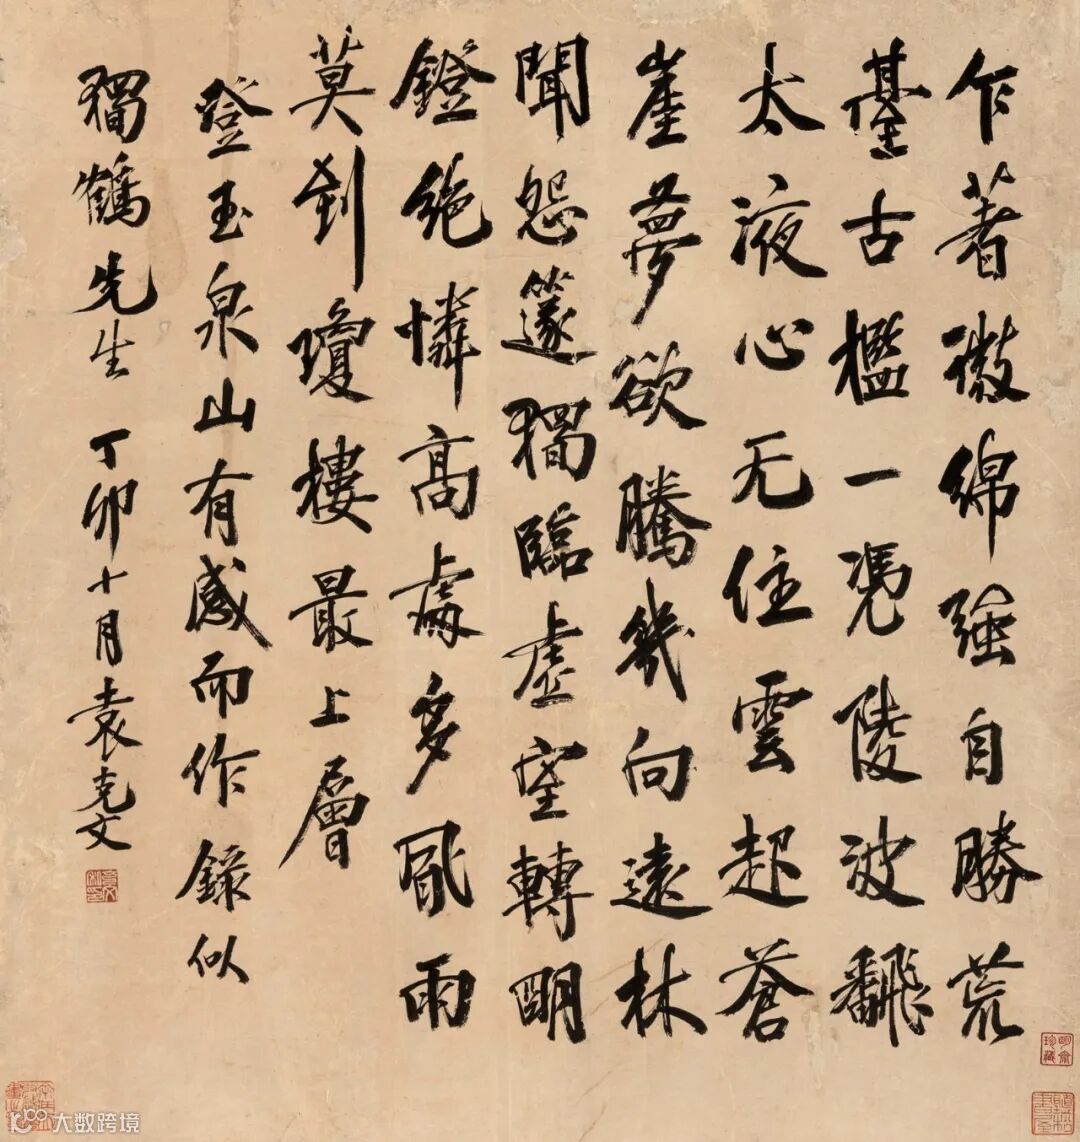 乍著微綿強自勝荒
臺古檻一凴陵波飜
太液心无住雲起蒼
崖夢欲騰幾向遠林
聞怨篴獨臨虛室轉明
鐙絕憐高處多風雨
莫到瓊樓最上層
登玉泉山有感而作錄似
獨鶴先生 丁卯十月袁克文
大数跨境